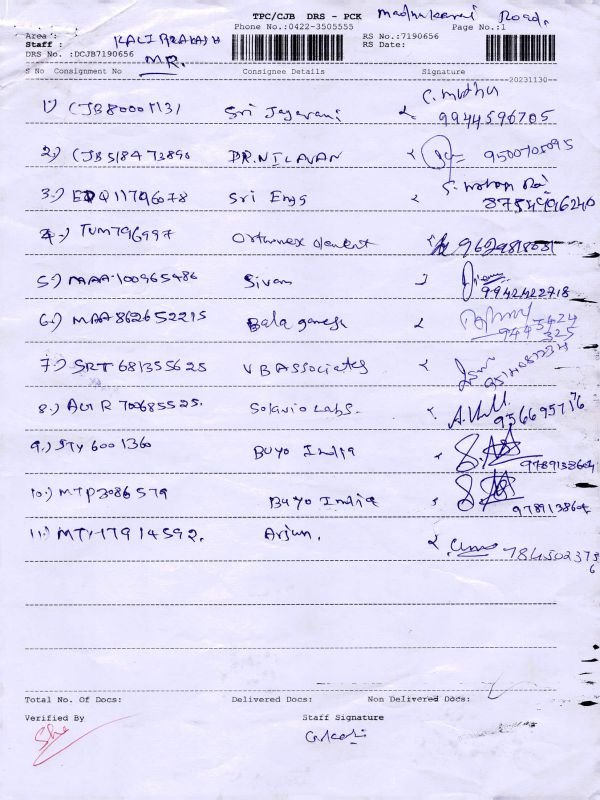 TPC/CJB DRS - PCK Madhukarai Road.
Phone No.:0422-3505555 Page No.:1
Area : RS No.:7190656
Staff : KALI PRAKASH RS Date:
DRS No. :DCJB7190656 MR.
S No Consignment No Consignee Details Signature
20231130
1) CJB80001131 Sri Jayavani C. Muthu 9944596705
2) CJB518473890 DR.NILAVAN 9500705095
3.) EDQ11796078 Sri Engg 8754996240
4.) TUM796997 9629818051
5.) MAA100965486 Sivam 9942422718
6.) MAA862652215 Bala ganesh 9445424325
7.) SRT681355625 VB Associates
8.) AUR700685525. Solavio Labs. 956695716
9.) STY6001360 Buyo India 9789138604
10.) MTP3086579 Buyo India 978913860
11.) MTH17914592. Arjun. 7845023756
Total No. Of Docs: Delivered Docs: Non Delivered Docs:
Verified By Staff Signature